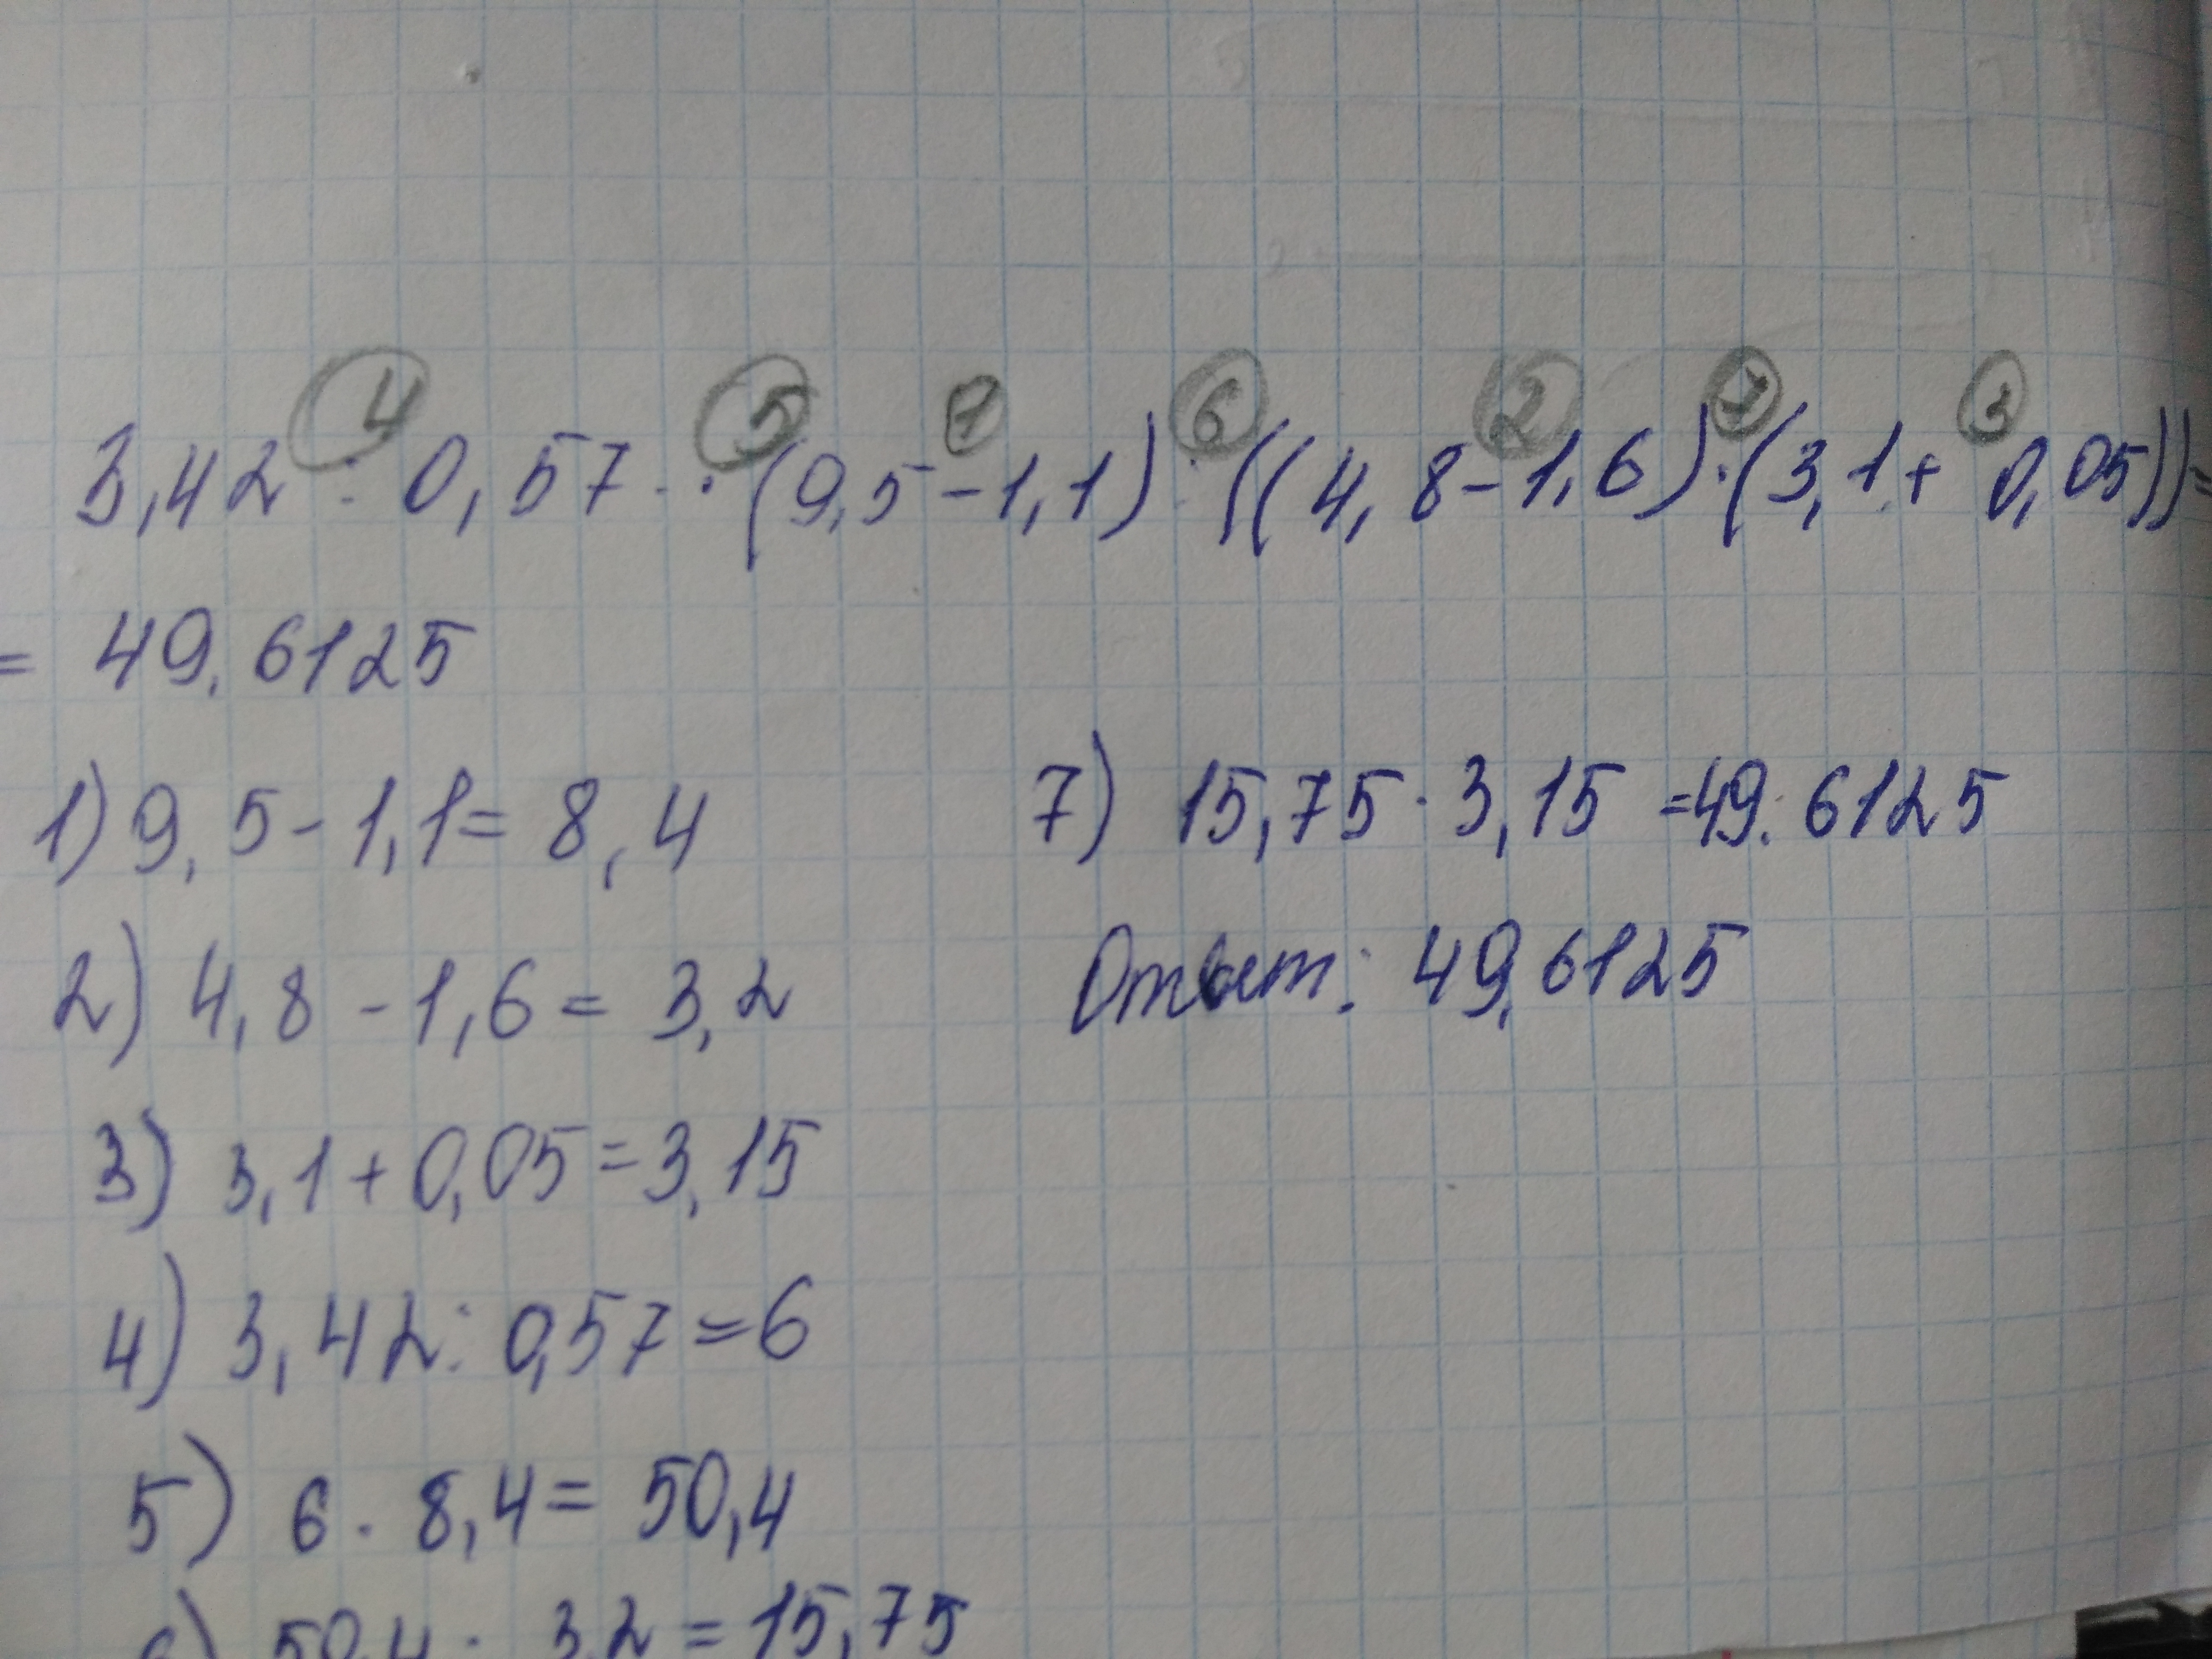 4 5 1 6 2 7 3
3,42 : 0,57 · (9,5 - 1,1) : ((4,8 - 1,6) · (3,1 + 0,05)) =
= 49,6125
1) 9,5 - 1,1 = 8,4
2) 4,8 - 1,6 = 3,2
3) 3,1 + 0,05 = 3,15
4) 3,42 : 0,57 = 6
5) 6 · 8,4 = 50,4
6) 50,4 : 3,2 = 15,75
7) 15,75 · 3,15 = 49,6125
Ответ: 49,6125